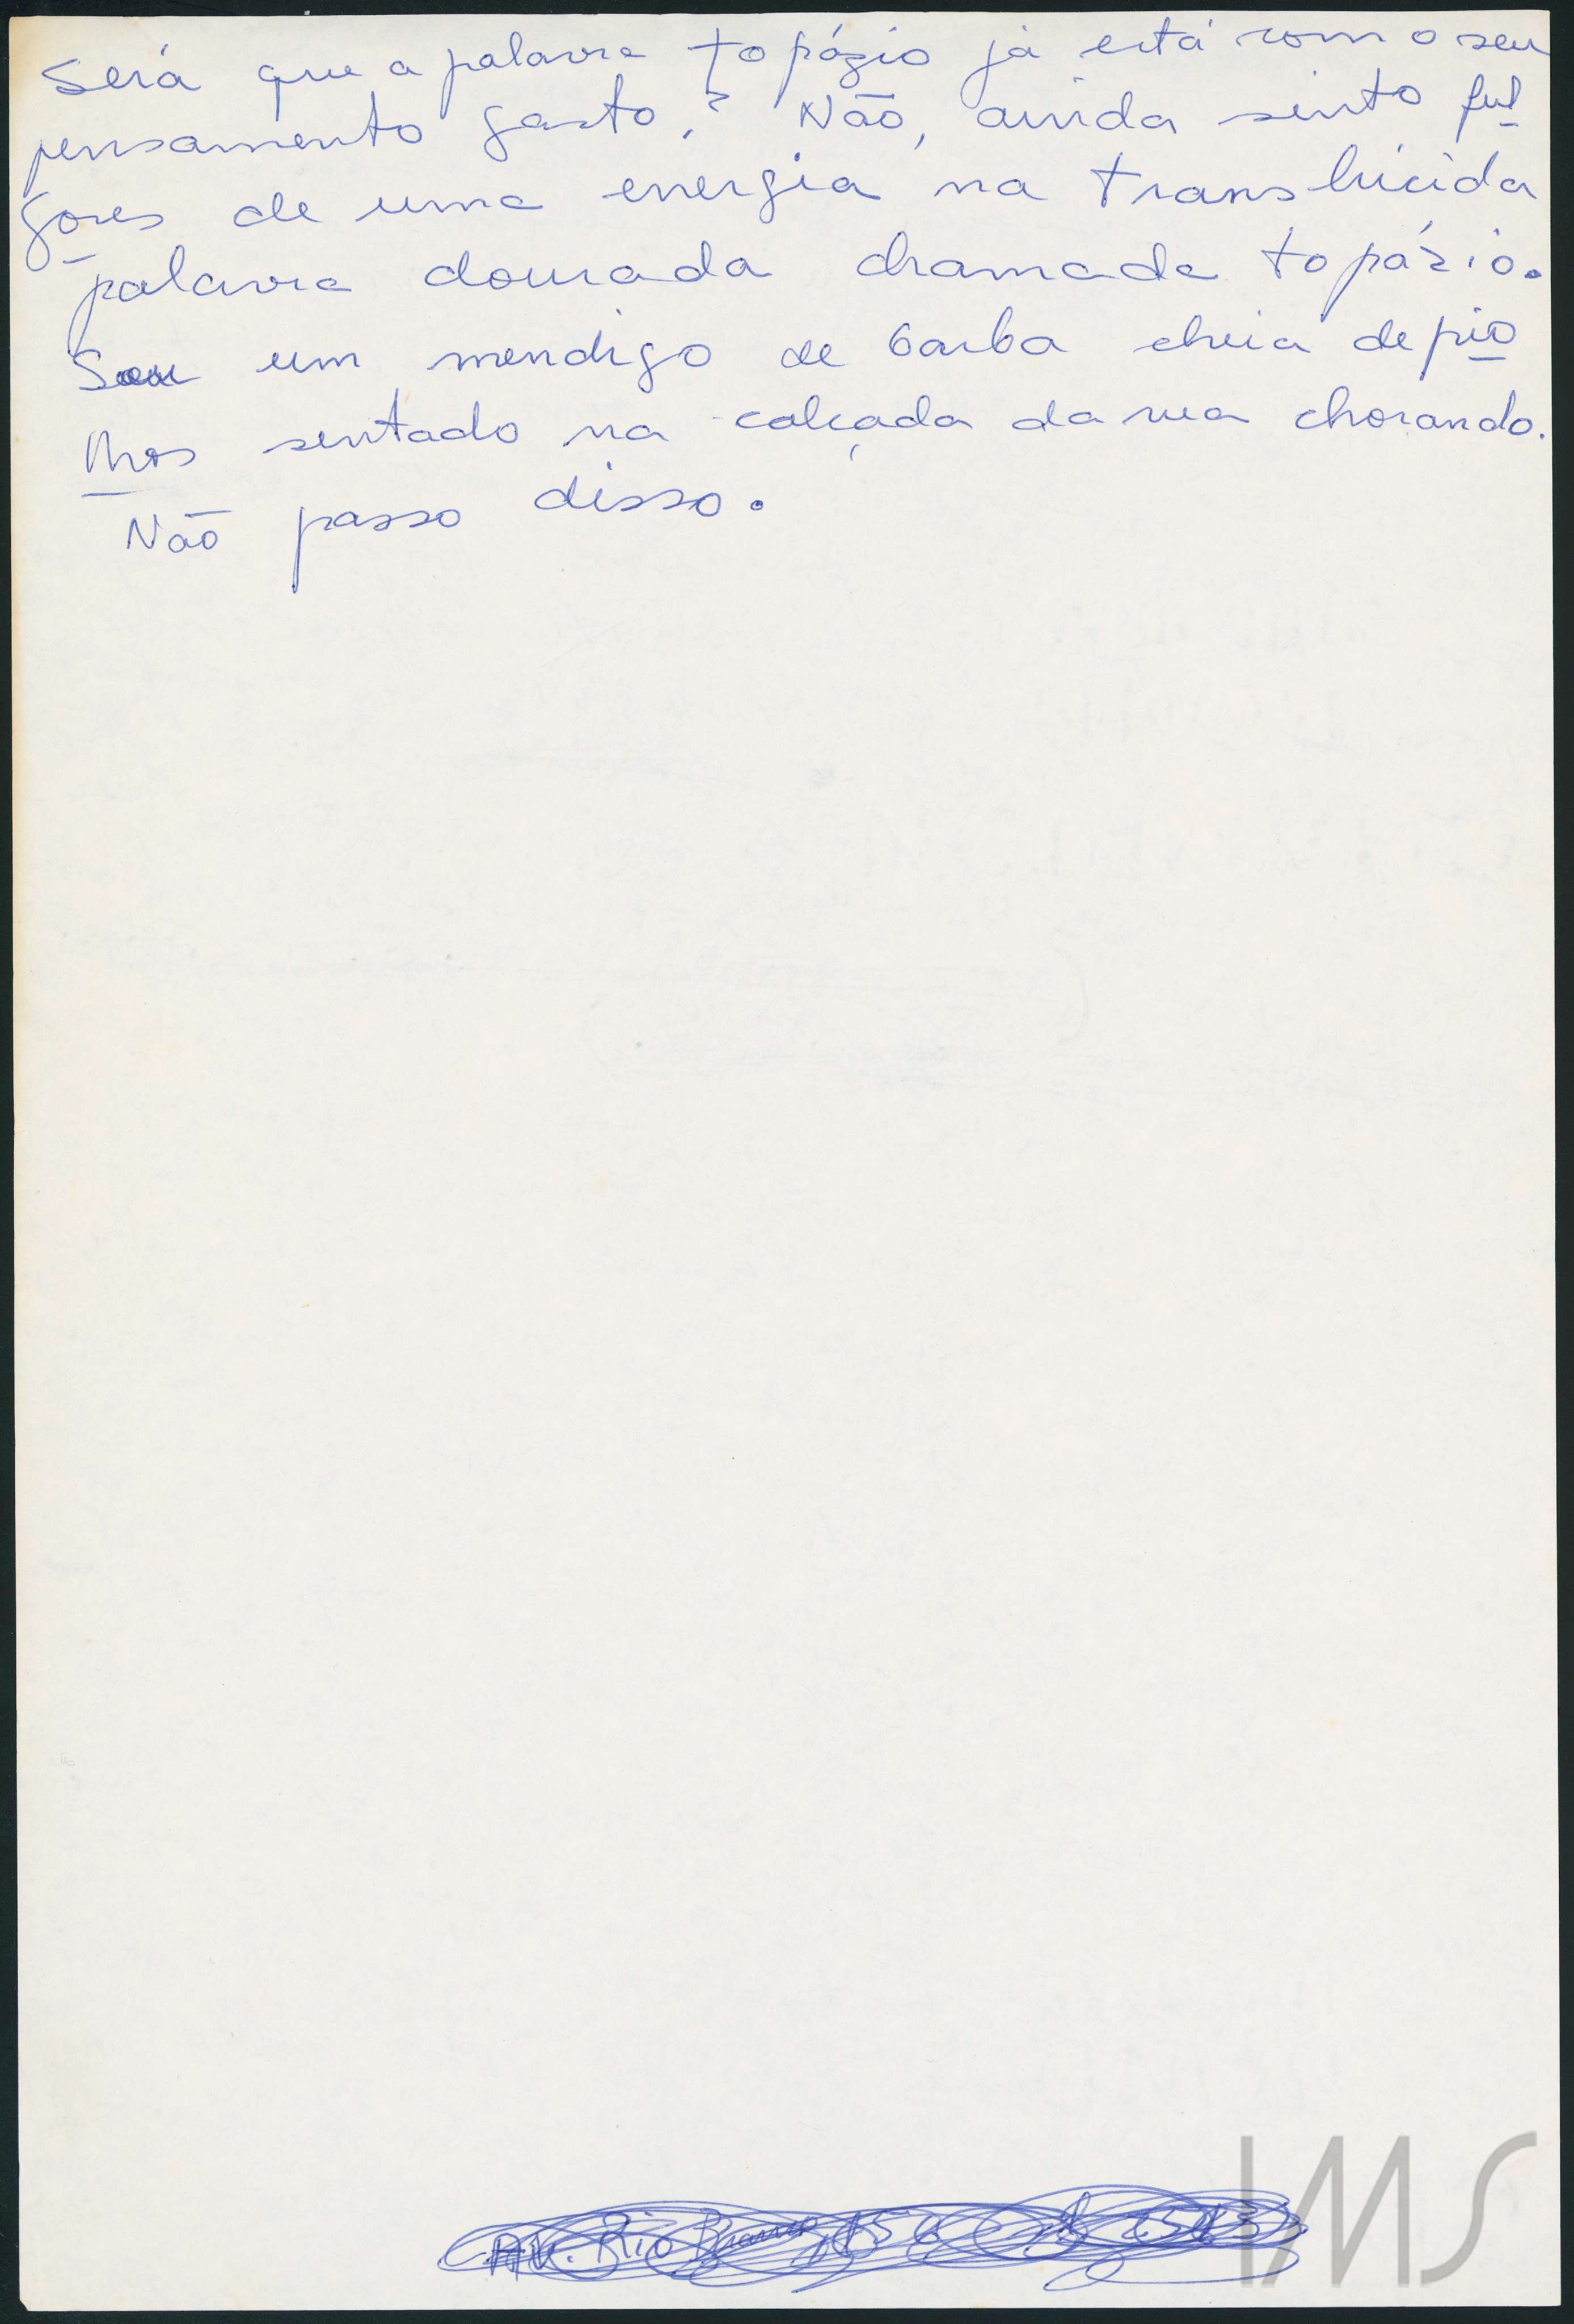 Será que a palavra topázio já está com o seu
pensamento gasto? Não, ainda sinto ful
gores de uma energia na translúcida
palavra dourada chamada topázio.
Sou um mendigo de barba cheia de pio
lhos sentado na calçada da rua chorando.
Não passo disso.
Av. Rio Branco, 156
IMS